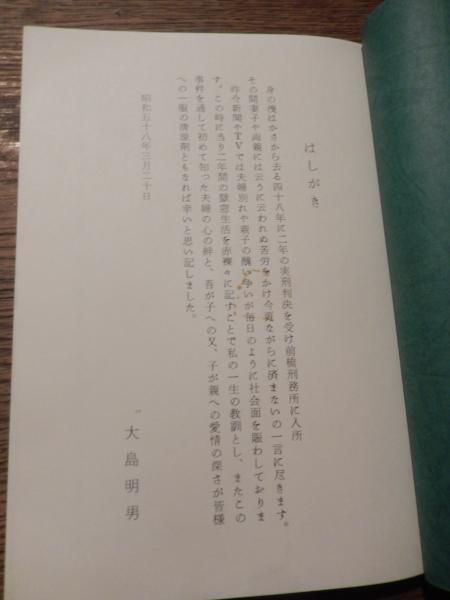 はしがき
身の浅はかさから去る四十八年に二年の実刑判決を受け前橋刑務所に入所
その間妻子や両親には云うに云われぬ苦労をかけ今更ながらに済まないの一言に尽きます。
昨今新聞やTVでは夫婦別れや親子の醜い争いが毎日のように社会面を賑わしておりま
す。この時に当り二年間の獄窓生活を赤裸々に記すことで私の一生の教訓とし、またこの
事件を通して初めて知った夫婦の心の絆と、吾が子への又、子が親への愛情の深さが皆様
への一服の清涼剤ともなれば幸いと思い記しました。
昭和五十八年三月二十日
大島明男